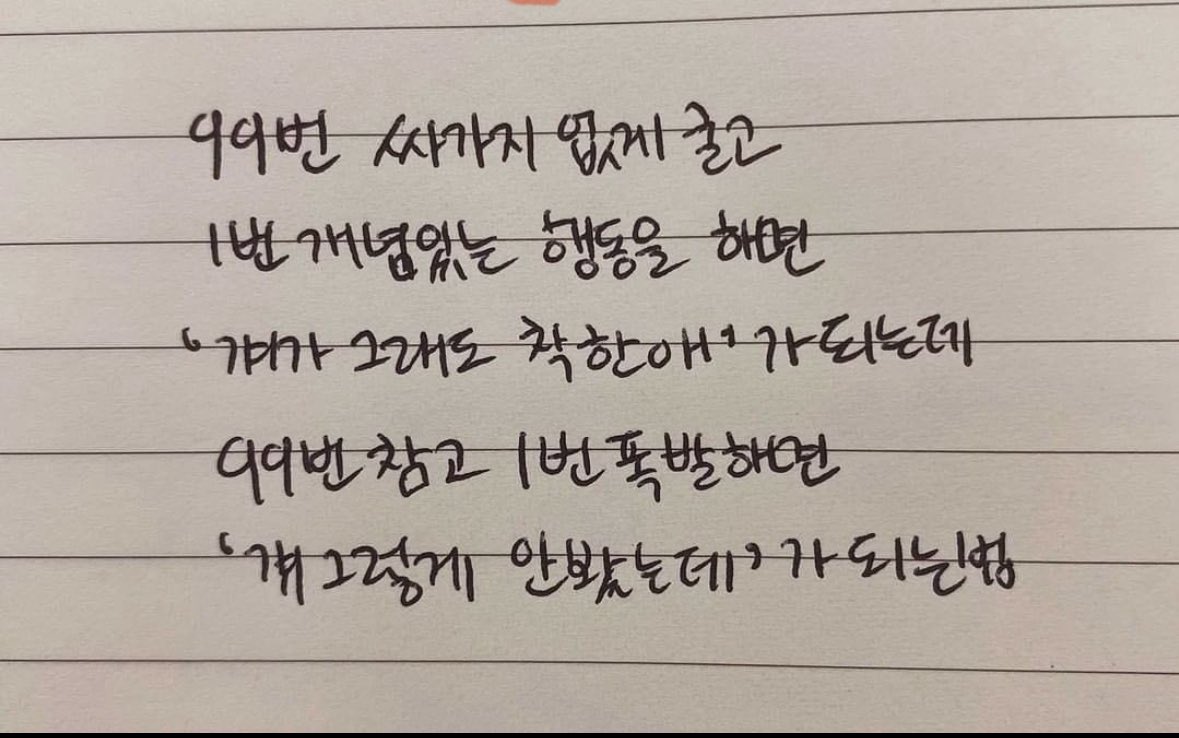 99번 싸가지 없게 굴고
1번 개념있는 행동을 하면
'걔가 그래도 착한애'가 되는데
99번 참고 1번 폭발하면
'걔 그렇게 안봤는데'가 되는법